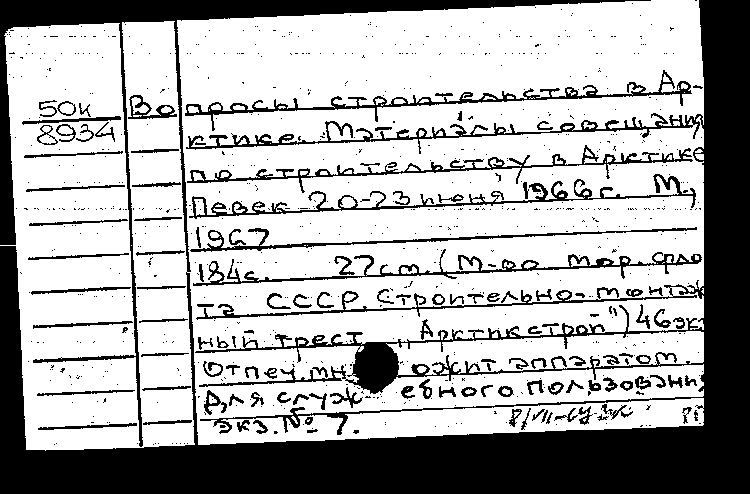 50к Вопросы строительства в Ар-
8934 ктике. Материалы совещания
по строительству в Арктике
Певек 20-23 июня 1966г. М.,
1967
184с. 27см. (М-во мор. фло
та СССР. Строительно-монтаж
ный трест „Арктикстрой") 46экз
Отпеч. мн ожит. аппаратом.
Для служ ебного пользования
экз. № 7.